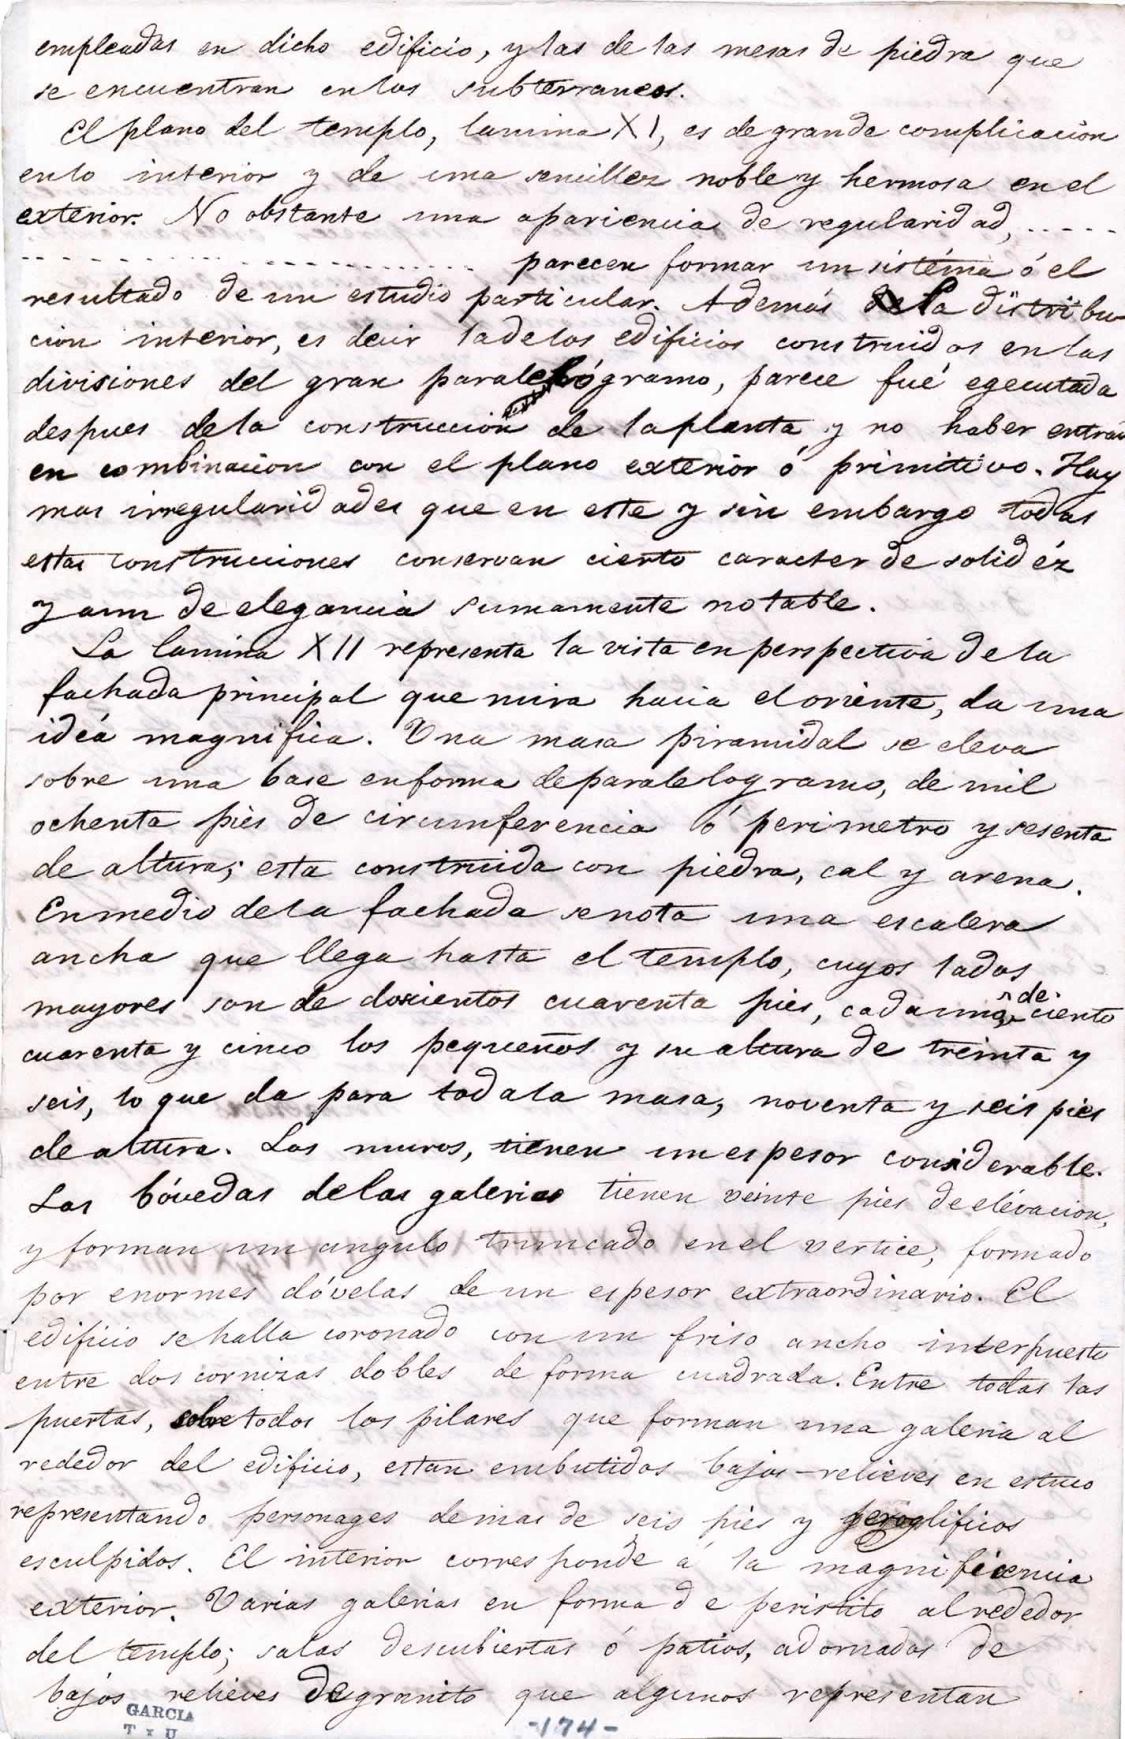 empleadas en dicho edificio, y las de las mesas de piedra que
se encuentran en los subterraneos.
El plano del templo, lamina XI, es de grande complicacion
en lo interior y de una sencillez noble y hermosa en el
exterior. No obstante una apariencia de regularidad, .....
.............................. parecen formar un sistéma ó el
resultado de un estudio particular. Además de la distribu-
cion interior, es decir la de los edificios construidos en las
divisiones del gran paralelógramo, parece fué egecutada
despues de la construccion de la planta y no haber entrado
en combinacion con el plano exterior ó primitivo. Hay
mas irregularidades que en este y sin embargo todas
estas construcciones conservan cierto caracter de solidéz
y aun de elegancia sumamente notable.
La lamina XII representa la vista en perspectiva de la
fachada principal que mira hacia el oriente, da una
idéa magnifica. Una masa piramidal se eleva
sobre una base en forma de paralelogramo, de mil
ochenta piés de circunferencia ó perimetro y sesenta
de altura; esta construida con piedra, cal y arena.
En medio de la fachada se nota una escalera
ancha que llega hasta el templo, cuyos lados
mayores son de doscientos cuarenta pies, cada uno, de ciento
cuarenta y cinco los pequeños y su altura de treinta y
seis, lo que da para toda la masa, noventa y seis pies
de altura. Los muros, tienen un espesor considerable.
Las bóvedas de las galerias tienen veinte pies de elévacion,
y forman un angulo truncado en el vertice, formado
por enormes dóvelas de un espesor extraordinario. El
edificio se halla coronado con un friso ancho interpuesto
entre dos cornizas dobles de forma cuadrada. Entre todas las
puertas, sobre todos los pilares que forman una galeria al
rededor del edificio, estan embutidos bajos-relieves en estuco
representando personages de mas de seis pies y geroglificos
esculpidos. El interior corresponde á la magnificencia
exterior. Varias galerias en forma de peristilo al rededor
del templo; salas descubiertas ó patios, adornados de
bajos relieves de granito que algunos representan
GARCIA
-174-